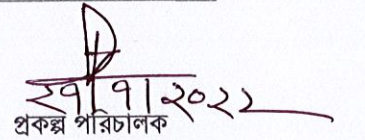 ২৭|৭|২০২২
প্রকল্প পরিচালক